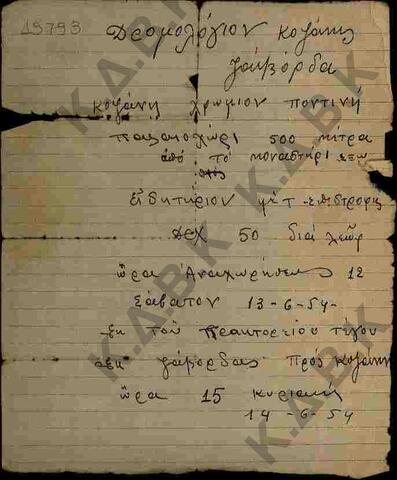 19793
Δρομολόγιον Κοζάνης
Ζάβορδα
Κοζάνη χρωμιον ποντινή
παλαιοχώρι 500 μέτρα
από το μοναστήρι εξω
εἰσητήριον μετ επιστροφης
Δρχ 50 διά λεωφ
ὥρα Αναχωρήσεως 12
Σάβατον 13-6-54-
εκ τοῦ πρακτορείου τέγου
εκ Ζάβορδας πρός Κοζάνη
ὥρα 15 κυριακή
14-6-54
Κ.Δ.Β.Κ
Κ.Δ.Β.Κ
Κ.Δ.Β.Κ